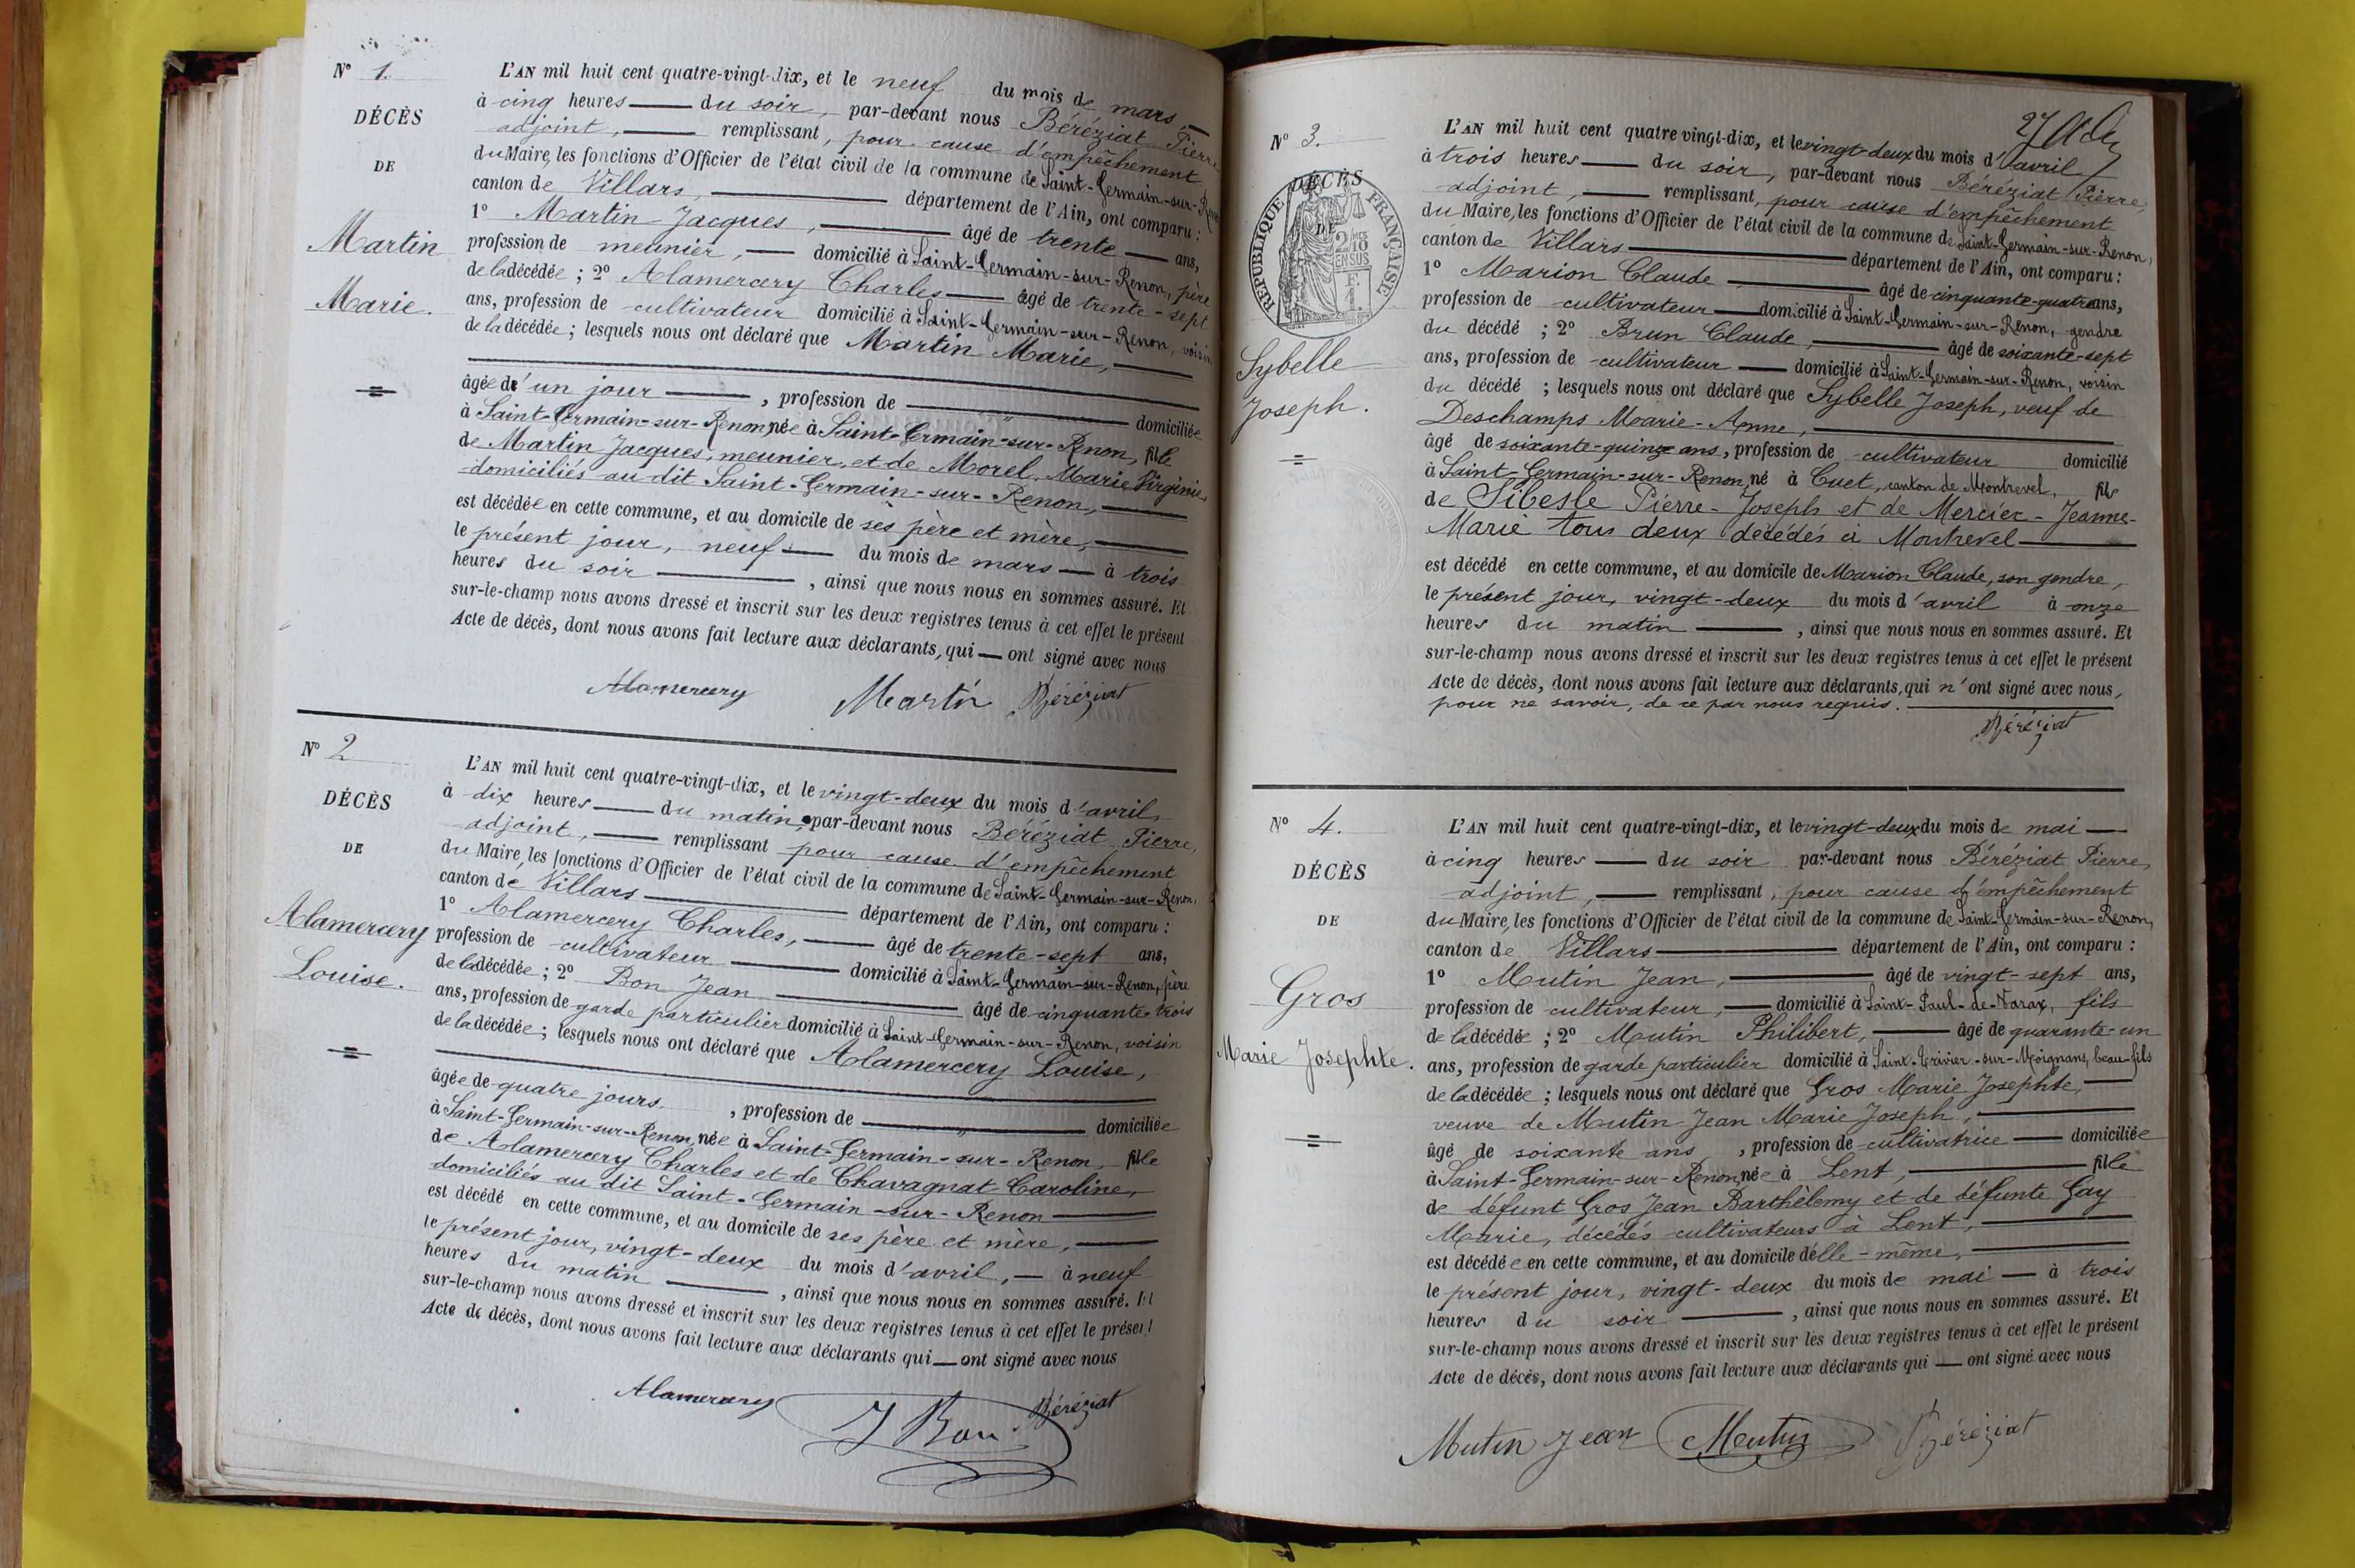 N° 1.
DÉCÈS
DE
Martin
Marie.
L'AN mil huit cent quatre-vingt-dix, et le neuf du mois de mars,
à cinq heures du soir, par-devant nous Béréziat Pierre
adjoint, remplissant, pour cause d'empêchement
du Maire, les fonctions d'Officier de l'état civil de la commune de Saint-Germain-sur-Renon
canton de Villars, département de l'Ain, ont comparu :
1° Martin Jacques, âgé de trente ans,
profession de meunier, domicilié à Saint-Germain-sur-Renon, père
de la décédée ; 2° Alamercery Charles âgé de trente-sept
ans, profession de cultivateur domicilié à Saint-Germain-sur-Renon, voisin
de la décédée ; lesquels nous ont déclaré que Martin Marie,
âgée d'un jour, profession de " domiciliée
à Saint-Germain-sur-Renon, née à Saint-Germain-sur-Renon, fille
de Martin Jacques, meunier, et de Morel Marie Virginie
domiciliés au dit Saint-Germain-sur-Renon,
est décédée en cette commune, et au domicile de ses père et mère,
le présent jour, neuf du mois de mars à trois
heures du soir, ainsi que nous nous en sommes assuré. Et
sur-le-champ nous avons dressé et inscrit sur les deux registres tenus à cet effet le présent
Acte de décès, dont nous avons fait lecture aux déclarants, qui ont signé avec nous
Alamercery Martin Béréziat
N° 2
DÉCÈS
DE
Alamercery
Louise.
L'AN mil huit cent quatre-vingt-dix, et le vingt-deux du mois d'avril,
à dix heures du matin, par-devant nous Béréziat Pierre,
adjoint, remplissant pour cause d'empêchement
du Maire, les fonctions d'Officier de l'état civil de la commune de Saint-Germain-sur-Renon,
canton de Villars département de l'Ain, ont comparu :
1° Alamercery Charles, âgé de trente-sept ans,
profession de cultivateur domicilié à Saint-Germain-sur-Renon, père
de la décédée ; 2° Bon Jean âgé de cinquante-trois
ans, profession de garde particulier domicilié à Saint-Germain-sur-Renon, voisin
de la décédée ; lesquels nous ont déclaré que Alamercery Louise,
âgée de quatre jours, profession de " domiciliée
à Saint-Germain-sur-Renon, née à Saint-Germain-sur-Renon, fille
de Alamercery Charles et de Chavagnat Caroline,
domiciliés au dit Saint-Germain-sur-Renon
est décédé en cette commune, et au domicile de ses père et mère,
le présent jour, vingt-deux du mois d'avril, à neuf
heures du matin, ainsi que nous nous en sommes assuré. Et
sur-le-champ nous avons dressé et inscrit sur les deux registres tenus à cet effet le présent
Acte de décès, dont nous avons fait lecture aux déclarants qui ont signé avec nous
Alamercery J Bon Béréziat
N° 3.
DÉCÈS
DE
RÉPUBLIQUE FRANÇAISE
2/10
EN SUS
Sybelle
Joseph.
L'AN mil huit cent quatre vingt-dix, et le vingt-deux du mois d'avril
à trois heures du soir, par-devant nous Béréziat Pierre,
adjoint, remplissant, pour cause d'empêchement
du Maire, les fonctions d'Officier de l'état civil de la commune de Saint-Germain-sur-Renon,
canton de Villars département de l'Ain, ont comparu :
1° Marion Claude âgé de cinquante-quatre ans,
profession de cultivateur domicilié à Saint-Germain-sur-Renon, gendre
du décédé ; 2° Brun Claude, âgé de soixante-sept
ans, profession de cultivateur domicilié à Saint-Germain-sur-Renon, voisin
du décédé ; lesquels nous ont déclaré que Sybelle Joseph, veuf de
Deschamps Marie-Anne,
âgé de soixante-quinze ans, profession de cultivateur domicilié
à Saint-Germain-sur-Renon, né à Cuet, canton de Montrevel, fils
de Sibesle Pierre-Joseph et de Mercier-Jeanne-
Marie tous deux décédés à Montrevel
est décédé en cette commune, et au domicile de Marion Claude, son gendre,
le présent jour, vingt-deux du mois d'avril à onze
heures du matin, ainsi que nous nous en sommes assuré. Et
sur-le-champ nous avons dressé et inscrit sur les deux registres tenus à cet effet le présent
Acte de décès, dont nous avons fait lecture aux déclarants, qui n'ont signé avec nous,
pour ne savoir, de ce par nous requis.
Béréziat
N° 4.
DÉCÈS
DE
Gros
Marie Josephte.
L'AN mil huit cent quatre-vingt-dix, et le vingt-deux du mois de mai
à cinq heures du soir par-devant nous Béréziat Pierre,
adjoint, remplissant, pour cause d'empêchement
du Maire, les fonctions d'Officier de l'état civil de la commune de Saint-Germain-sur-Renon,
canton de Villars département de l'Ain, ont comparu :
1° Mutin Jean, âgé de vingt-sept ans,
profession de cultivateur, domicilié à Saint-Paul-de-Varax, fils
de la décédée ; 2° Mutin Philibert, âgé de quarante-un
ans, profession de garde particulier domicilié à Saint-Trivier-sur-Moignans, beau-fils
de la décédée ; lesquels nous ont déclaré que Gros Marie Josephte,
veuve de Mutin Jean Marie Joseph,
âgé de soixante ans, profession de cultivatrice domiciliée
à Saint-Germain-sur-Renon, née à Lent, fille
de défunt Gros Jean Barthélemy et de défunte Gay
Marie, décédés cultivateurs à Lent,
est décédée en cette commune, et au domicile d'elle-même,
le présent jour, vingt-deux du mois de mai à trois
heures du soir, ainsi que nous nous en sommes assuré. Et
sur-le-champ nous avons dressé et inscrit sur les deux registres tenus à cet effet le présent
Acte de décès, dont nous avons fait lecture aux déclarants qui ont signé avec nous
Mutin Jean Mutin Béréziat